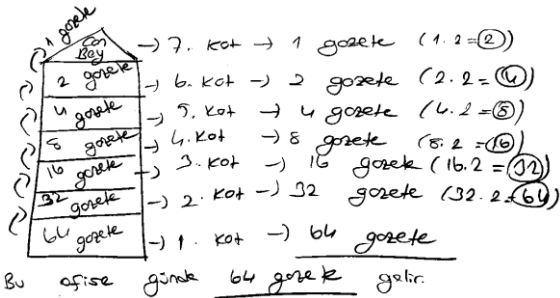 1 gazete
Can Bey → 7. kat → 1 gazete (1.2=2)
2 gazete → 6. kat → 2 gazete (2.2=4)
4 gazete → 5. kat → 4 gazete (4.2=8)
8 gazete → 4. kat → 8 gazete (8.2=16)
16 gazete → 3. kat → 16 gazete (16.2=32)
32 gazete → 2. kat → 32 gazete (32.2=64)
64 gazete → 1. kat → 64 gazete
Bu ofise günde 64 gazete gelir.